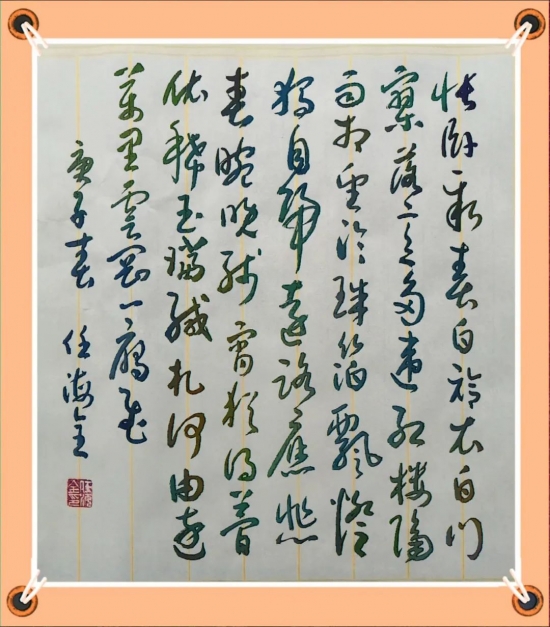 悵臥新春白袷衣白門
寥落意多違紅樓隔
雨相望冷珠箔飄燈
獨自歸遠路應悲
春晼晚殘宵猶得夢
依稀玉璫緘札何由達
萬里雲羅一雁飛
庚子春 任海